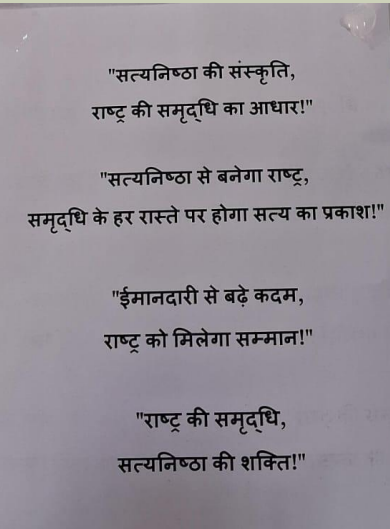 "सत्यनिष्ठा की संस्कृति,
राष्ट्र की समृद्धि का आधार!"
"सत्यनिष्ठा से बनेगा राष्ट्र,
समृद्धि के हर रास्ते पर होगा सत्य का प्रकाश!"
"ईमानदारी से बढ़े कदम,
राष्ट्र को मिलेगा सम्मान!"
"राष्ट्र की समृद्धि,
सत्यनिष्ठा की शक्ति!"